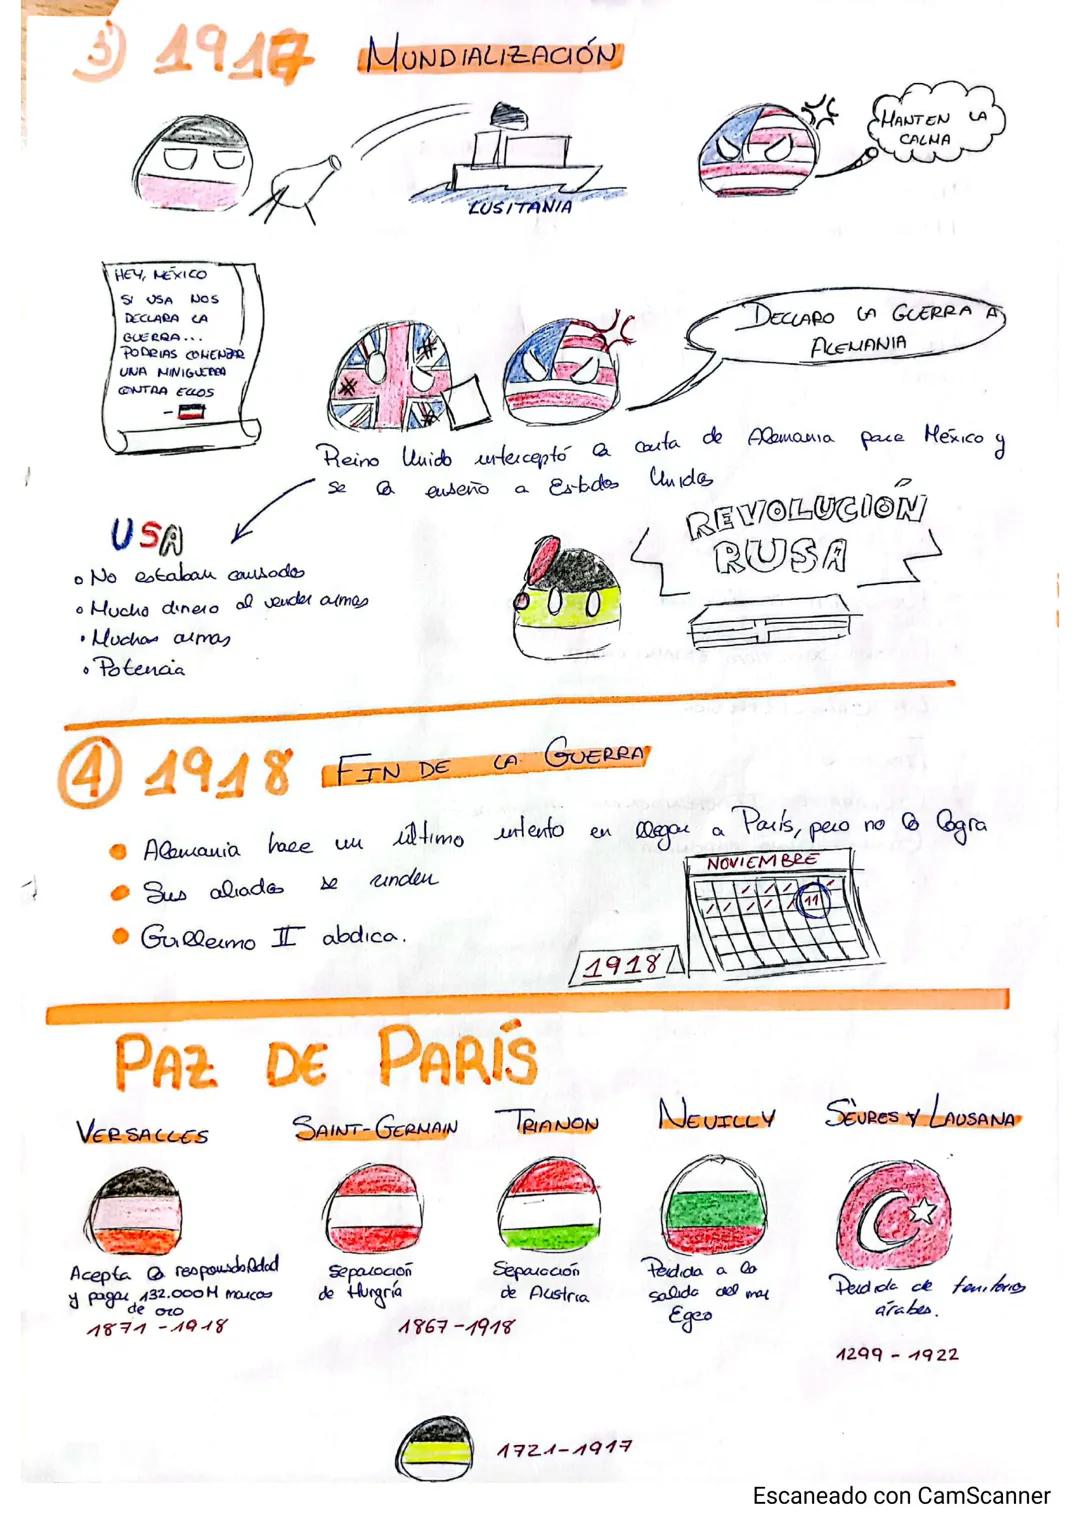 3) 1917 MUNDIALIZACIÓN
MANTEN LA
CALMA
LUSITANIA
HEY, MÉXICO
SI USA NOS
DECLARA LA
GUERRA...
PODRIAS COMENZAR
UNA MINIGUERRA
CONTRA ELLOS
-
DECLARO LA GUERRA A
ALEMANIA
Reino Unido interceptó la carta de Alemania para México y
se la enseño a Estados Unidos
USA
No estaban cansados
Mucho dinero al vender armas
Muchas armas
Potencia
REVOLUCIÓN
RUSA
4 1918 FIN DE LA GUERRA
Alemania hace un último intento en llegar a París, pero no lo logra
Sus aliados se rinden
Guillermo II abdica.
NOVIEMBRE
11
1918
PAZ DE PARÍS
VERSALLES
SAINT-GERMAIN
TRIANON
NEUILLY
SÈVRES Y LAUSANA
Acepta la responsabilidad
y pagar 132.000M marcos
de oro
1871-1918
Separación
de Hungría
Separación
de Austria
1867-1918
Perdida a la
salida del mar
Egeo
Perdida de territorios
árabes.
1299-1922
1721-1917
Escaneado con CamScanner